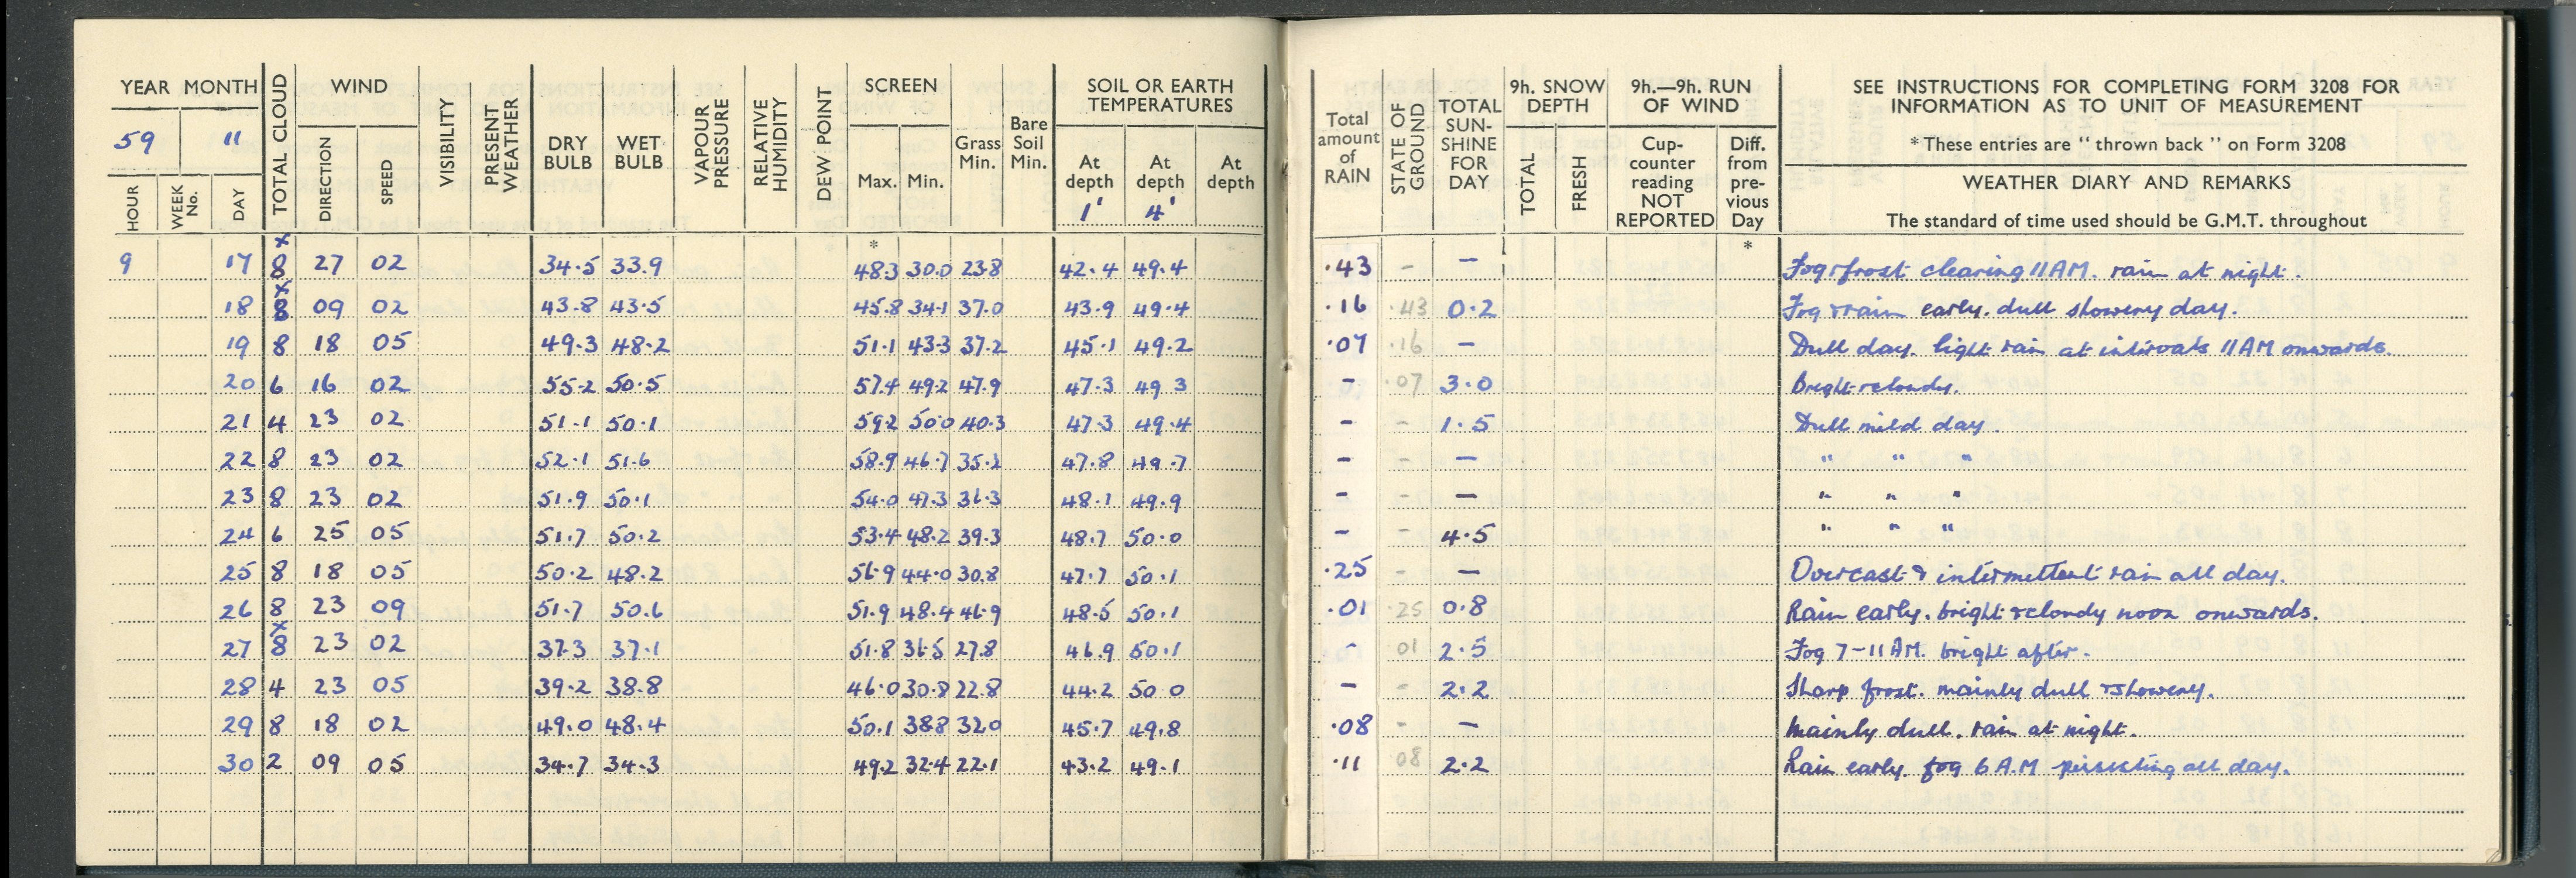 YEAR MONTH TOTAL CLOUD WIND VISIBILITY PRESENT WEATHER DRY BULB WET BULB VAPOUR PRESSURE RELATIVE HUMIDITY DEW POINT SCREEN Grass Min. Bare Soil Min. SOIL OR EARTH TEMPERATURES
59 11 DIRECTION SPEED Max. Min. At depth 1' At depth 4' At depth
HOUR WEEK No. DAY
Total amount of RAIN STATE OF GROUND TOTAL SUN-SHINE FOR DAY 9h. SNOW DEPTH TOTAL FRESH 9h.—9h. RUN OF WIND Cup-counter reading NOT REPORTED Diff. from pre-vious Day
SEE INSTRUCTIONS FOR COMPLETING FORM 3208 FOR
INFORMATION AS TO UNIT OF MEASUREMENT
* These entries are "thrown back" on Form 3208
WEATHER DIARY AND REMARKS
The standard of time used should be G.M.T. throughout
x * *
9 17 8 27 02 34.5 33.9 48.3 30.0 23.8 42.4 49.4 .43 - - Fog & frost clearing 11 AM. rain at night.
x
18 8 09 02 43.8 43.5 45.8 34.1 37.0 43.9 49.4 .16 .43 0.2 Fog & rain early. dull showery day.
19 8 18 05 49.3 48.2 51.1 43.3 37.2 45.1 49.2 .07 .16 - Dull day. light rain at intervals 11 AM onwards.
20 6 16 02 55.2 50.5 57.4 49.2 47.9 47.3 49.3 - .07 3.0 Bright & cloudy.
21 4 23 02 51.1 50.1 59.2 50.0 40.3 47.3 49.4 - - 1.5 Dull mild day.
22 8 23 02 52.1 51.6 58.9 46.7 35.2 47.8 49.7 - - - " " "
23 8 23 02 51.9 50.1 54.0 47.3 36.3 48.1 49.9 - - - " " "
24 6 25 05 51.7 50.2 53.4 48.2 39.3 48.7 50.0 - - 4.5 " " "
25 8 18 05 50.2 48.2 56.9 44.0 30.8 47.7 50.1 .25 - - Overcast & intermittent rain all day.
26 8 23 09 51.7 50.6 51.9 48.4 46.9 48.5 50.1 .01 .25 0.8 Rain early. bright & cloudy noon onwards.
x
27 8 23 02 37.3 37.1 51.8 36.5 27.8 46.9 50.1 - 01 2.5 Fog 7-11 AM. bright after.
28 4 23 05 39.2 38.8 46.0 30.8 22.8 44.2 50.0 - - 2.2 Sharp frost. mainly dull & showery.
29 8 18 02 49.0 48.4 50.1 38.8 32.0 45.7 49.8 .08 - - Mainly dull. rain at night.
30 2 09 05 34.7 34.3 49.2 32.4 22.1 43.2 49.1 .11 08 2.2 Rain early. fog 6 A.M persisting all day.